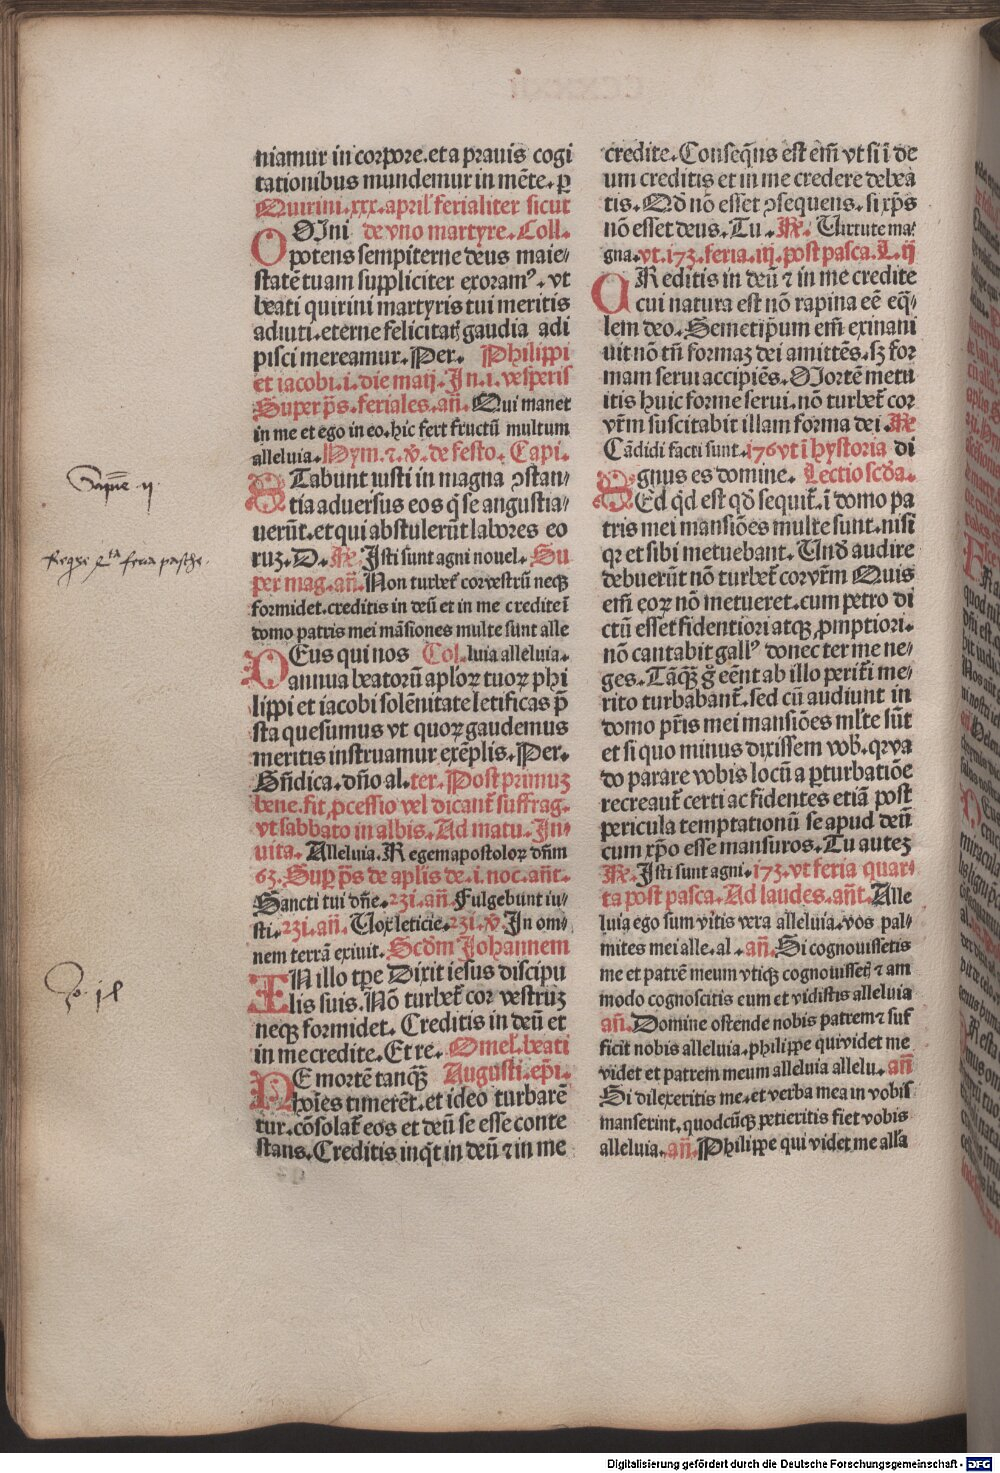 niamur in corpore.et a prauis cogi
tationibus mundemur in mēte.ꝑ
Quirini.xxx.april' ferialiter sicut
OMni de vno martyre.Coll.
potens sempiterne deus maie⸗
statē tuam suppliciter exoramꝰ.vt
beati quirini martyris tui meritis
adiuti.eterne felicitatꝭ gaudia adi
pisci mereamur.Per. Philippi
et iacobi.i.die maij.In.i.vesperis
Super p̄s.feriales.añ. Qui manet
in me et ego in eo.hic fert fructū multum
alleluia.Hym.⁊.v̄.de festo. Capi.
STabunt iusti in magna ꝯstan⸗
tia aduersus eos q̇ se angustia⸗
uerūt.et qui abstulerūt labores eo
ruꝫ.D. R̄. Isti sunt agni nouel. Su
per mag.añ. Non turbet᷑ cor vestrū neqꝫ
formidet.creditis in deū et in me credite ī
domo patris mei māsiones multe sunt alle
DEus qui nos Col. luia alleluia.
annua beatorū apl'oꝝ tuoꝝ phi
lippi et iacobi solēnitate letificas p̄
sta quesumus vt quoꝝ gaudemus
meritis instruamur exēplis.Per.
Bn̄dica.dn̄o al.ter. Post primuꝫ
bene.fit ꝓcessio vel dicant᷑ suffrag.
vt sabbato in albis. Ad matu. In⸗
uita. Alleluia. Regem apostoloꝝ dn̄m
63. Suꝑ p̄s de aplis de.i.noc.añt.
Sancti tui dn̄e.231.añ. Fulgebunt iu⸗
sti.231.añ. Vox leticie.231.v̄. In om⸗
nem terrā exiuit. Scd̄m Johannem
IN illo tꝑe Dixit iesus discipu
lis suis. Nō turbet᷑ cor vestruꝫ
neqꝫ formidet. Creditis in deū et
in me credite. Et re. Omel'.beati
NE mortē tanqꝫ̄ Augusti.ep̄i.
hoīes timerēt.et ideo turbarē
tur.cōsolat᷑ eos et deū se esse conte
stans.Creditis inq̇t in deū ⁊ in me
credite.Conseq̄ns est em̄ vt si ī de
um creditis et in me credere debea
tis.Qd̄ nō esset ꝯsequens.si xp̄s
nō esset deus.Tu. R̄. Virtute ma⸗
gna.vt.173.feria.iij.post pasca.L.ij
CReditis in deū ⁊ in me credite
cui natura est nō rapina eē eq̄⸗
lem deo.Semetip̄um em̄ exinani
uit nō tn̄ formaꝫ dei amittēs.sꝫ for
mam serui accipiēs.Mortē metu
itis huic forme serui.nō turbet᷑ cor
vr̄m suscitabit illam forma dei. R̄
Cādidi facti sunt.176 vt ī hystoria di
gnus es domine. Lectio scd̄a.
SEd q̇d est qd̄ sequit᷑.ī domo pa
tris mei mansiōes multe sunt.nisi
qꝛ et sibi metuebant. Vnd̄ audire
debuerūt nō turbet᷑ cor vr̄m Quis
em̄ eoꝝ nō metueret.cum petro di
ctū esset fidentiori atqꝫ ꝓmptiori.
nō cantabit gallꝰ donec ter me ne⸗
ges.Tāqꝫ̄ g̊ eēnt ab illo perit᷑i me⸗
rito turbabant᷑.sed cū audiunt in
domo pr̄is mei mansiōes ml'te sūt
et si quo minus dixissem vob'.qꝛ va
do parare vobis locū a ꝑturbatiōe
recreant᷑ certi ac fidentes etiā post
pericula temptationū se apud deū
cum xp̄o esse mansuros.Tu auteꝫ
R̄. Isti sunt agni.173.vt feria quar⸗
ta post pasca. Ad laudes.añt. Alle
luia ego sum vitis vera alleluia.vos pal⸗
mites mei alle.al. añ. Si cognouissetis
me et patrē meum vtiqꝫ cognouissetꝭ ⁊ am
modo cognoscitis eum et vidistis alleluia
añ. Domine ostende nobis patrem ⁊ suf
ficit nobis alleluia.philippe qui videt me
videt et patrem meum alleluia allelu. añ
Si dilexeritis me.et verba mea in vobis
manserint.quodcūqꝫ petieritis fiet vobis
alleluia.añ. Philippe qui videt me all'a
Sapiē ij.
Jo. 14
CCXXXI